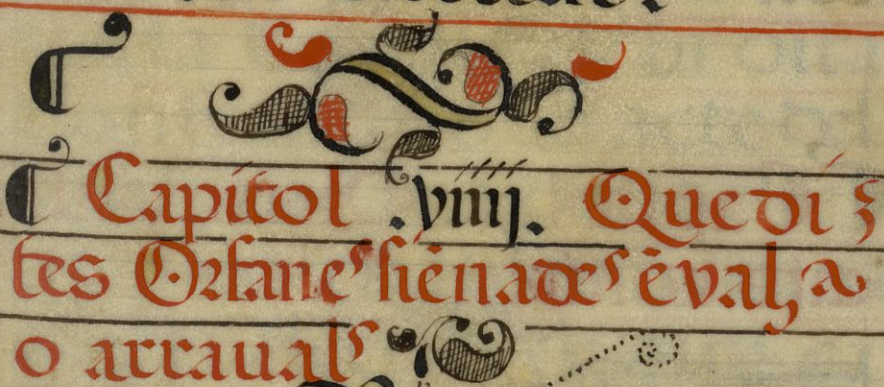 ¶ Capitol .viiij. Que di
tes Orfanes siēnades ē val
o arravals